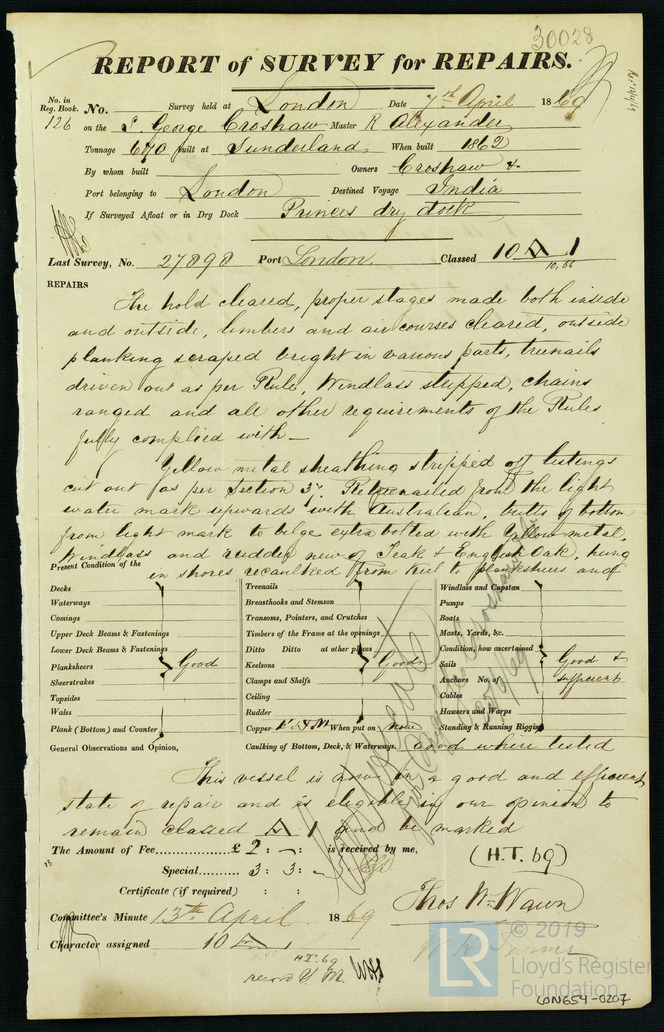 30028
REPORT of SURVEY for REPAIRS.
No. in Reg. Book. No. Survey held at London Date 7th April 1869
126 on the S. George Croshaw Master R Alexander
Tonnage 640 built at Sunderland When built 1862
By whom built Owners Croshaw &
Port belonging to London Destined Voyage India
If Surveyed Afloat or in Dry Dock Princes dry dock
Last Survey, No. 27898 Port London Classed 10 A 1
10,66
REPAIRS
The hold cleared, proper stages made both inside
and outside, limbers and air courses cleared, outside
planking scraped bright in various parts, treenails
driven out as per Rule, Windlass stripped, chains
ranged and all other requirements of the Rules
fully complied with—
Yellow metal sheathing stripped off listings
cut out as per Section 3. Retreenailed from the light
water mark upwards with Australian, butts of bottom
from light mark to bilge extra bolted with Yellow metal,
Windlass and rudder new of Teak & English Oak, hung
Present Condition of the in shores recaulked from keel to plansheers and
Decks Treenails Windlass and Capstan
Waterways Breasthooks and Stemson Pumps
Comings Transoms, Pointers, and Crutches Boats
Upper Deck Beams & Fastenings Timbers of the Frame at the openings Masts, Yards, &c.
Lower Deck Beams & Fastenings Ditto Ditto at other places Condition, how ascertained
Planksheers Good Keelsons Good Sails Good &
Sheerstrakes Clamps and Shelfs Anchors No. of sufficient
Topsides Ceiling Cables
Wales Rudder Hawsers and Warps
Plank (Bottom) and Counter Copper Y M When put on now Standing & Running Rigging
General Observations and Opinion, Caulking of Bottom, Deck, & Waterways, Good where tested
This vessel is now in a good and efficient
state of repair and is eligible in our opinion to
remain classed A 1 and be marked
The Amount of Fee £ 2 : - : is received by me, (H.T. 69)
Special 3 : 3 : -
Certificate (if required) : : Thos Wm Wawn
Committee's Minute 13th April 1869
Character assigned 10 A 1
H.T. 69
record Y.M.
© 2019
LR Lloyd's Register
Foundation
LON654-0207